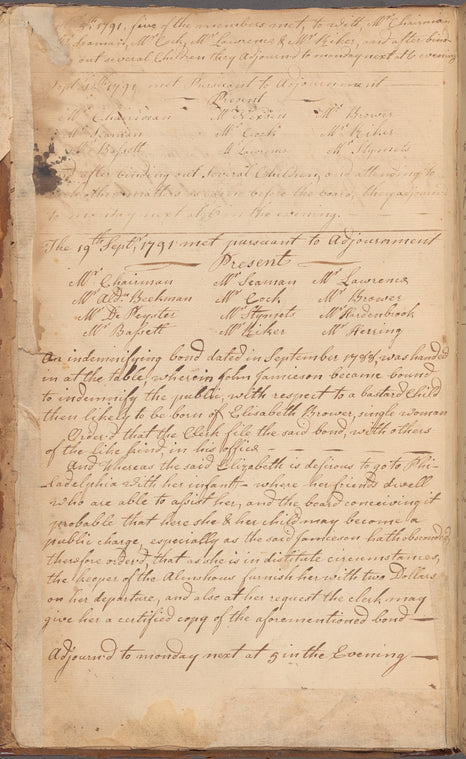 1791, five of the members met, to with, Mr. Chairman
Seaman, Mr. Cock, Mr. Lawrence & Mr. Riker, and after bind-
out several Children they Adjourn'd to monday next at 6 evening
Sept. 1791 met Pursuant to Adjournment
Present
Mr. Chairman Mr. Brower
Mr. Seaman Mr. Cock Mr. Riker
Mr. Bassett Mr. Lawrence Mr. Stymets
and after binding out Several Children, and attending to
other matters before the board, they adjourn'd
to monday next at 6 in the evening.
The 19th. Septr. 1791 met pursuant to Adjournment
Present
Mr. Chairman Mr. Seaman Mr. Lawrence
Mr. Aldn. Beekman Mr. Cock Mr. Brower
Mr. De Peyster Mr. Stymets Mr. Hardenbrook
Mr. Bassett Mr. Riker Mr. Herring
An indemnifying bond dated in September 1788, was handed
in at the table, wherein John Jamieson became bound
to indemnify the public, with respect to a bastard Child
then likely to be born of Elisabeth Brower, single woman
Order'd that the Clerk file the said bond, with others
of the like kind, in his office
And Whereas the said Elizabeth is desirous to go to Phi-
ladelphia with her infant - where her friends dwell
who are able to assist her, and the board conceiving it
probable that here she & her child may become a
public charge, especially as the said Jamieson hath absconded,
therefore order'd, that as she is in distitute circumstances,
the keeper of the Almshouse furnish her with two Dollars
on her departure, and also at her request the clerk may
give her a certified copy of the aforementioned bond
Adjourn'd to monday next at 5 in the Evening